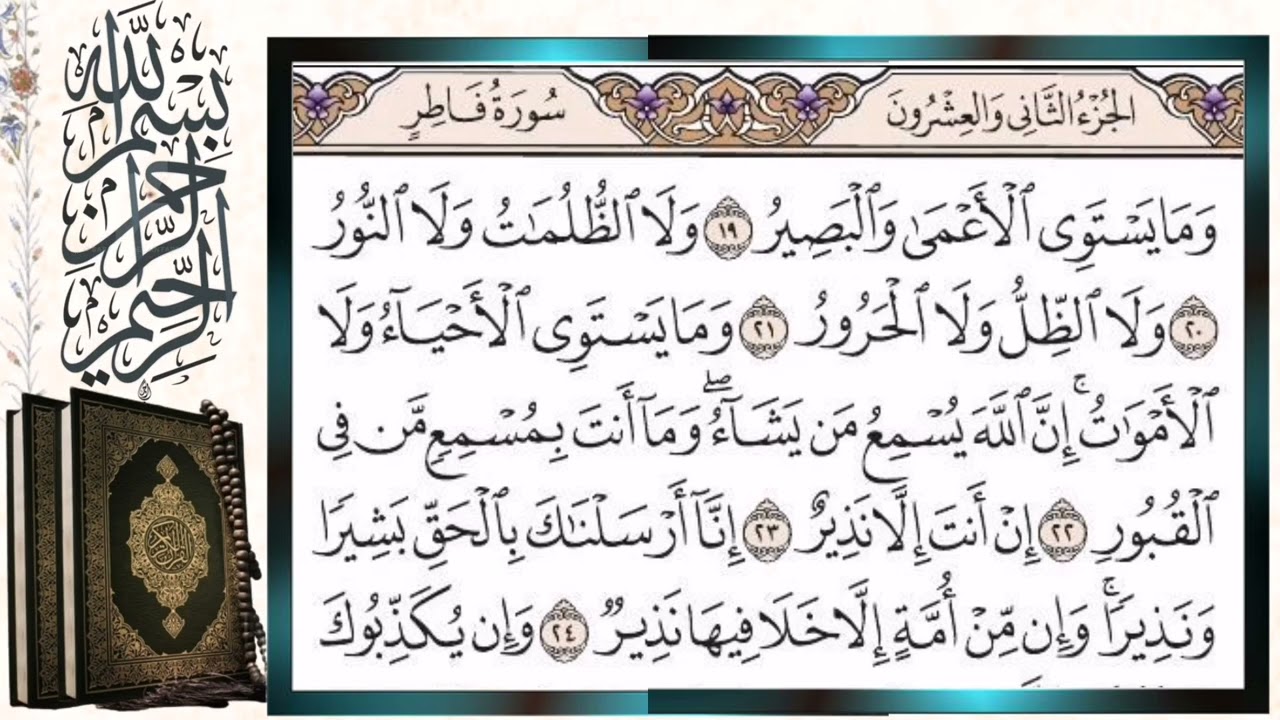 بسم الله الرحمن الرحيم
الجُزْءُ الثَّانِي وَالعِشْرُونَ
سُورَةُ فَاطِرٍ
وَمَا يَسْتَوِى ٱلْأَعْمَىٰ وَٱلْبَصِيرُ ١٩ وَلَا ٱلظُّلُمَٰتُ وَلَا ٱلنُّورُ
٢٠ وَلَا ٱلظِّلُّ وَلَا ٱلْحَرُورُ ٢١ وَمَا يَسْتَوِى ٱلْأَحْيَآءُ وَلَا
ٱلْأَمْوَٰتُ ۚ إِنَّ ٱللَّهَ يُسْمِعُ مَن يَشَآءُ ۖ وَمَآ أَنتَ بِمُسْمِعٍ مَّن فِى
ٱلْقُبُورِ ٢٢ إِنْ أَنتَ إِلَّا نَذِيرٌ ٢٣ إِنَّآ أَرْسَلْنَٰكَ بِٱلْحَقِّ بَشِيرًا
وَنَذِيرًا ۚ وَإِن مِّنْ أُمَّةٍ إِلَّا خَلَا فِيهَا نَذِيرٌ ٢٤ وَإِن يُكَذِّبُوكَ